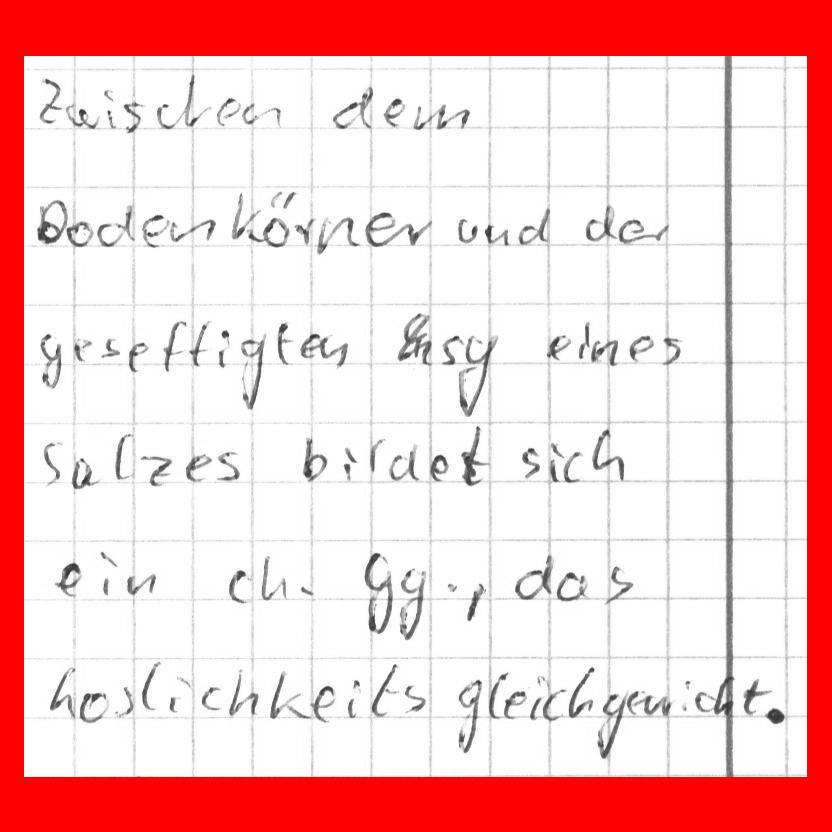 Zwischen dem
Bodenkörner und der
gesettigten Lsg eines
Salzes bildet sich
ein ch. Gg., das
Löslichkeits gleichgewicht.